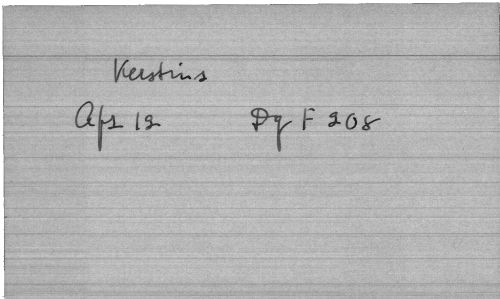 Kerstins
Apr 12 Dq F 208